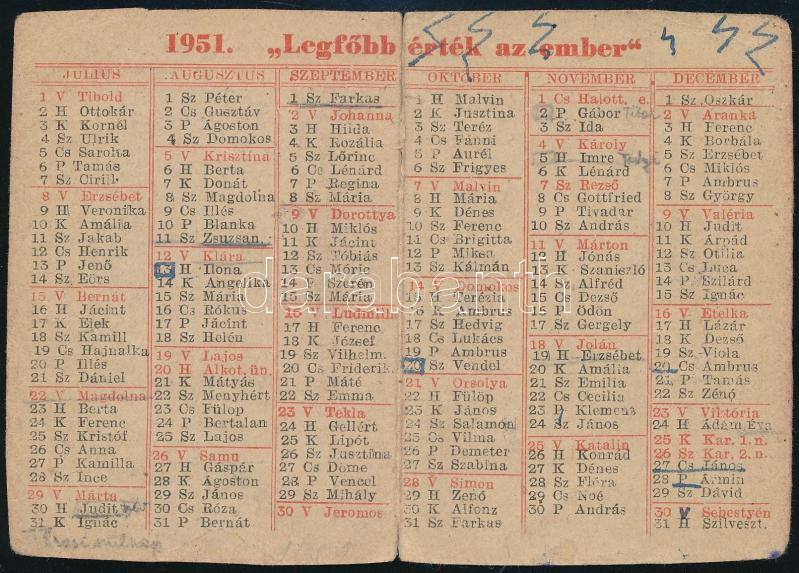 1951. „Legfőbb érték az ember“
JULIUS
1 V Tibold
2 H Ottokár
3 K Kornél
4 Sz Ulrik
5 Cs Sarolta
6 P Tamás
7 Sz Cirill
8 V Erzsébet
9 H Veronika
10 K Amália
11 Sz Jakab
12 Cs Henrik
13 P Jenő
14 Sz Eörs
15 V Bernát
16 H Jácint
17 K Elek
18 Sz Kamill
19 Cs Hajnalka
20 P Illés
21 Sz Dániel
22 V Magdolna
23 H Berta
24 K Ferenc
25 Sz Kristóf
26 Cs Anna
27 P Kamilla
28 Sz Ince
29 V Márta
30 H Judit
31 K Ignác
AUGUSZTUS
1 Sz Péter
2 Cs Gusztáv
3 P Ágoston
4 Sz Domokos
5 V Krisztina
6 H Berta
7 K Donát
8 Sz Magdolna
9 Cs Illés
10 P Blanka
11 Sz Zsuzsan.
12 V Klára
13 H Ilona
14 K Angelika
15 Sz Mária
16 Cs Rókus
17 P Jácint
18 Sz Helén
19 V Lajos
20 H Alkot. ün.
21 K Mátyás
22 Sz Menyhért
23 Cs Fülöp
24 P Bertalan
25 Sz Lajos
26 V Samu
27 H Gáspár
28 K Ágoston
29 Sz János
30 Cs Róza
31 P Bernát
SZEPTEMBER
1 Sz Farkas
2 V Johanna
3 H Hilda
4 K Rozália
5 Sz Lőrinc
6 Cs Lénárd
7 P Regina
8 Sz Mária
9 V Dorottya
10 H Miklós
11 K Jácint
12 Sz Tóbiás
13 Cs Móric
14 P Szerén
15 Sz Mária
16 V Ludmilla
17 H Ferenc
18 K József
19 Sz Vilhelm.
20 Cs Friderik
21 P Máté
22 Sz Emma
23 V Tekla
24 H Gellért
25 K Lipót
26 Sz Jusztina
27 Cs Döme
28 P Vencel
29 Sz Mihály
30 V Jeromos
OKTÓBER
1 H Malvin
2 K Jusztina
3 Sz Teréz
4 Cs Fánni
5 P Aurél
6 Sz Frigyes
7 V Malvin
8 H Mária
9 K Dénes
10 Sz Ferenc
11 Cs Brigitta
12 P Miksa
13 Sz Kálmán
14 V Domokos
15 H Terézia
16 K Ambrus
17 Sz Hedvig
18 Cs Lukács
19 P Ambrus
20 Sz Vendel
21 V Orsolya
22 H Fülöp
23 K János
24 Sz Salamon
25 Cs Vilma
26 P Demeter
27 Sz Szabina
28 V Simon
29 H Zenó
30 K Alfonz
31 Sz Farkas
NOVEMBER
1 Cs Halott. e.
2 P Gábor
3 Sz Ida
4 V Károly
5 H Imre
6 K Lénárd
7 Sz Rezső
8 Cs Gottfried
9 P Tivadar
10 Sz András
11 V Márton
12 H Jónás
13 K Szaniszló
14 Sz Alfréd
15 Cs Dezső
16 P Ödön
17 Sz Gergely
18 V Jolán
19 H Erzsébet
20 K Amália
21 Sz Emilia
22 Cs Cecilia
23 P Klemens
24 Sz János
25 V Katalin
26 H Konrád
27 K Dénes
28 Sz Flóra
29 Cs Noé
30 P András
DECEMBER
1 Sz Oszkár
2 V Aranka
3 H Ferenc
4 K Borbála
5 Sz Erzsébet
6 Cs Miklós
7 P Ambrus
8 Sz György
9 V Valéria
10 H Judit
11 K Árpád
12 Sz Otilia
13 Cs Luca
14 P Szilárd
15 Sz Ignác
16 V Etelka
17 H Lázár
18 K Dezső
19 Sz Viola
20 Cs Ambrus
21 P Tamás
22 Sz Zénó
23 V Viktória
24 H Ádám, Éva
25 K Kar. 1. n.
26 Sz Kar. 2. n.
27 Cs János
28 P Ármin
29 Sz Dávid
30 V Sebestyén
31 H Szilveszt.
darabanth